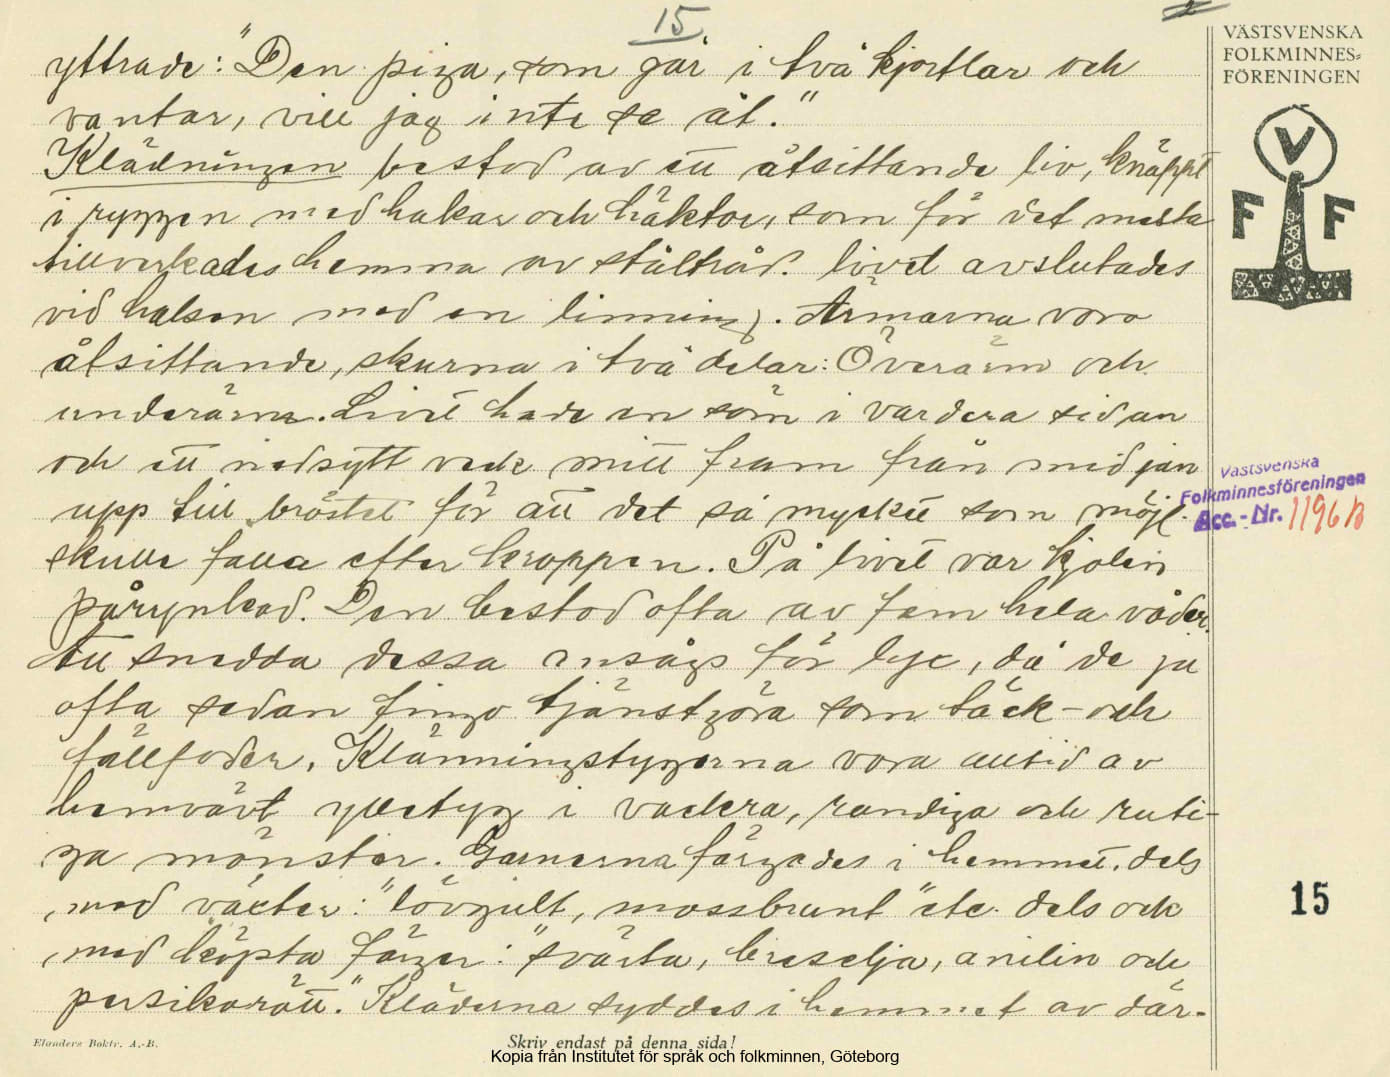 15
yttrade: "Den piga, som går i två kjortlar och
vantar, vill jag inte se åt."
Klädningen bestod av ett åtsittande liv, knäppt
i ryggen med hakar och häktor, som för det mesta
tillverkades hemma av ståltråd. livet avslutades
vid halsen med en linning. Ärmarna voro
åtsittande, skurna i två delar: Överärm och
underärm. Livet hade en söm i vardera sidan
och ett nedsytt veck mitt fram från midjan
upp till bröstet för att det så mycket som möjl.
skulle falla efter kroppen. På livet var kjolen
pårynkad. Den bestod ofta av fem hela våder.
Att snedda dessa ansågs för lyx, då de ju
ofta sedan fingo tjänstgöra som täck- och
fällfoder. Klänningstygerna voro alltid av
hemvävt ylletyg i vackra, randiga och ruti-
ga mönster. Garnerna färgades i hemmet, dels
med växter: "lövgult, mossbrunt" etc. dels ock
med köpta färger: "svärta, breselja, anilin och
persikorött." Kläderna syddes i hemmet av där-
VÄSTSVENSKA
FOLKMINNES-
FÖRENINGEN
V
F F
Västsvenska
Folkminnesföreningen
Acc. - Nr. 1196 B
15
Elanders Boktr. A.-B.
Skriv endast på denna sida!
Kopia från Institutet för språk och folkminnen, Göteborg